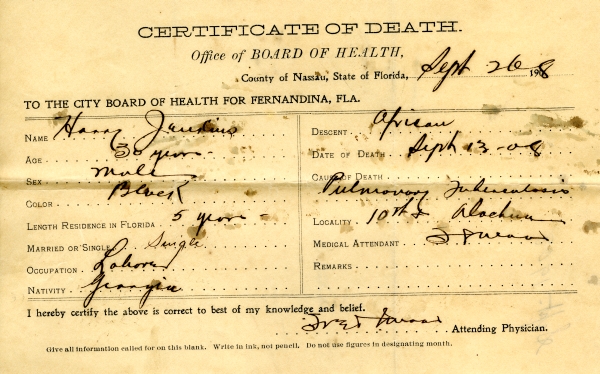 CERTIFICATE OF DEATH.
Office of BOARD OF HEALTH,
County of Nassau, State of Florida, Sept 26 1908
TO THE CITY BOARD OF HEALTH FOR FERNANDINA, FLA.
NAME Harry
AGE 30 years
SEX Male
COLOR Black
LENGTH RESIDENCE IN FLORIDA 5 years
MARRIED OR SINGLE Single
OCCUPATION Laborer
NATIVITY Georgia
DESCENT African
DATE OF DEATH Sept 13-08
CAUSE OF DEATH
Pulmonary Tuberculosis
LOCALITY 10th & Alachua
MEDICAL ATTENDANT
REMARKS
I hereby certify the above is correct to best of my knowledge and belief.
Attending Physician.
Give all information called for on this blank. Write in ink, not pencil. Do not use figures in designating month.